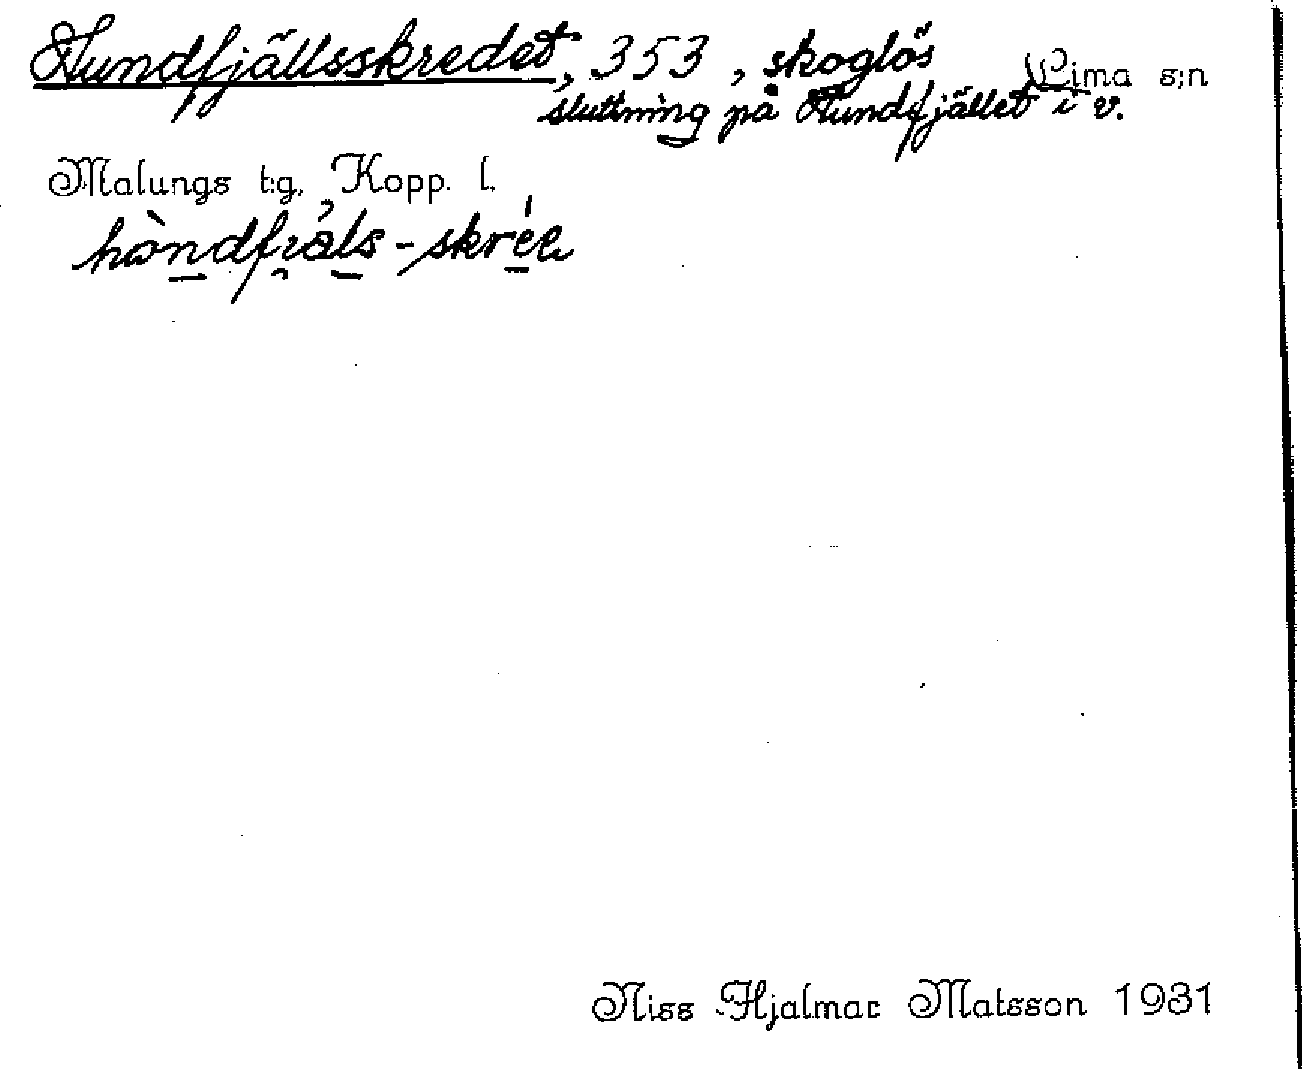 Hundfjällsskredet, 353, skoglös Lima s:n
sluttning på Hundfjället i v.
Malungs t:g. Kopp. l.
hòndfiáls-skrée
Niss Hjalmar Matsson 1931